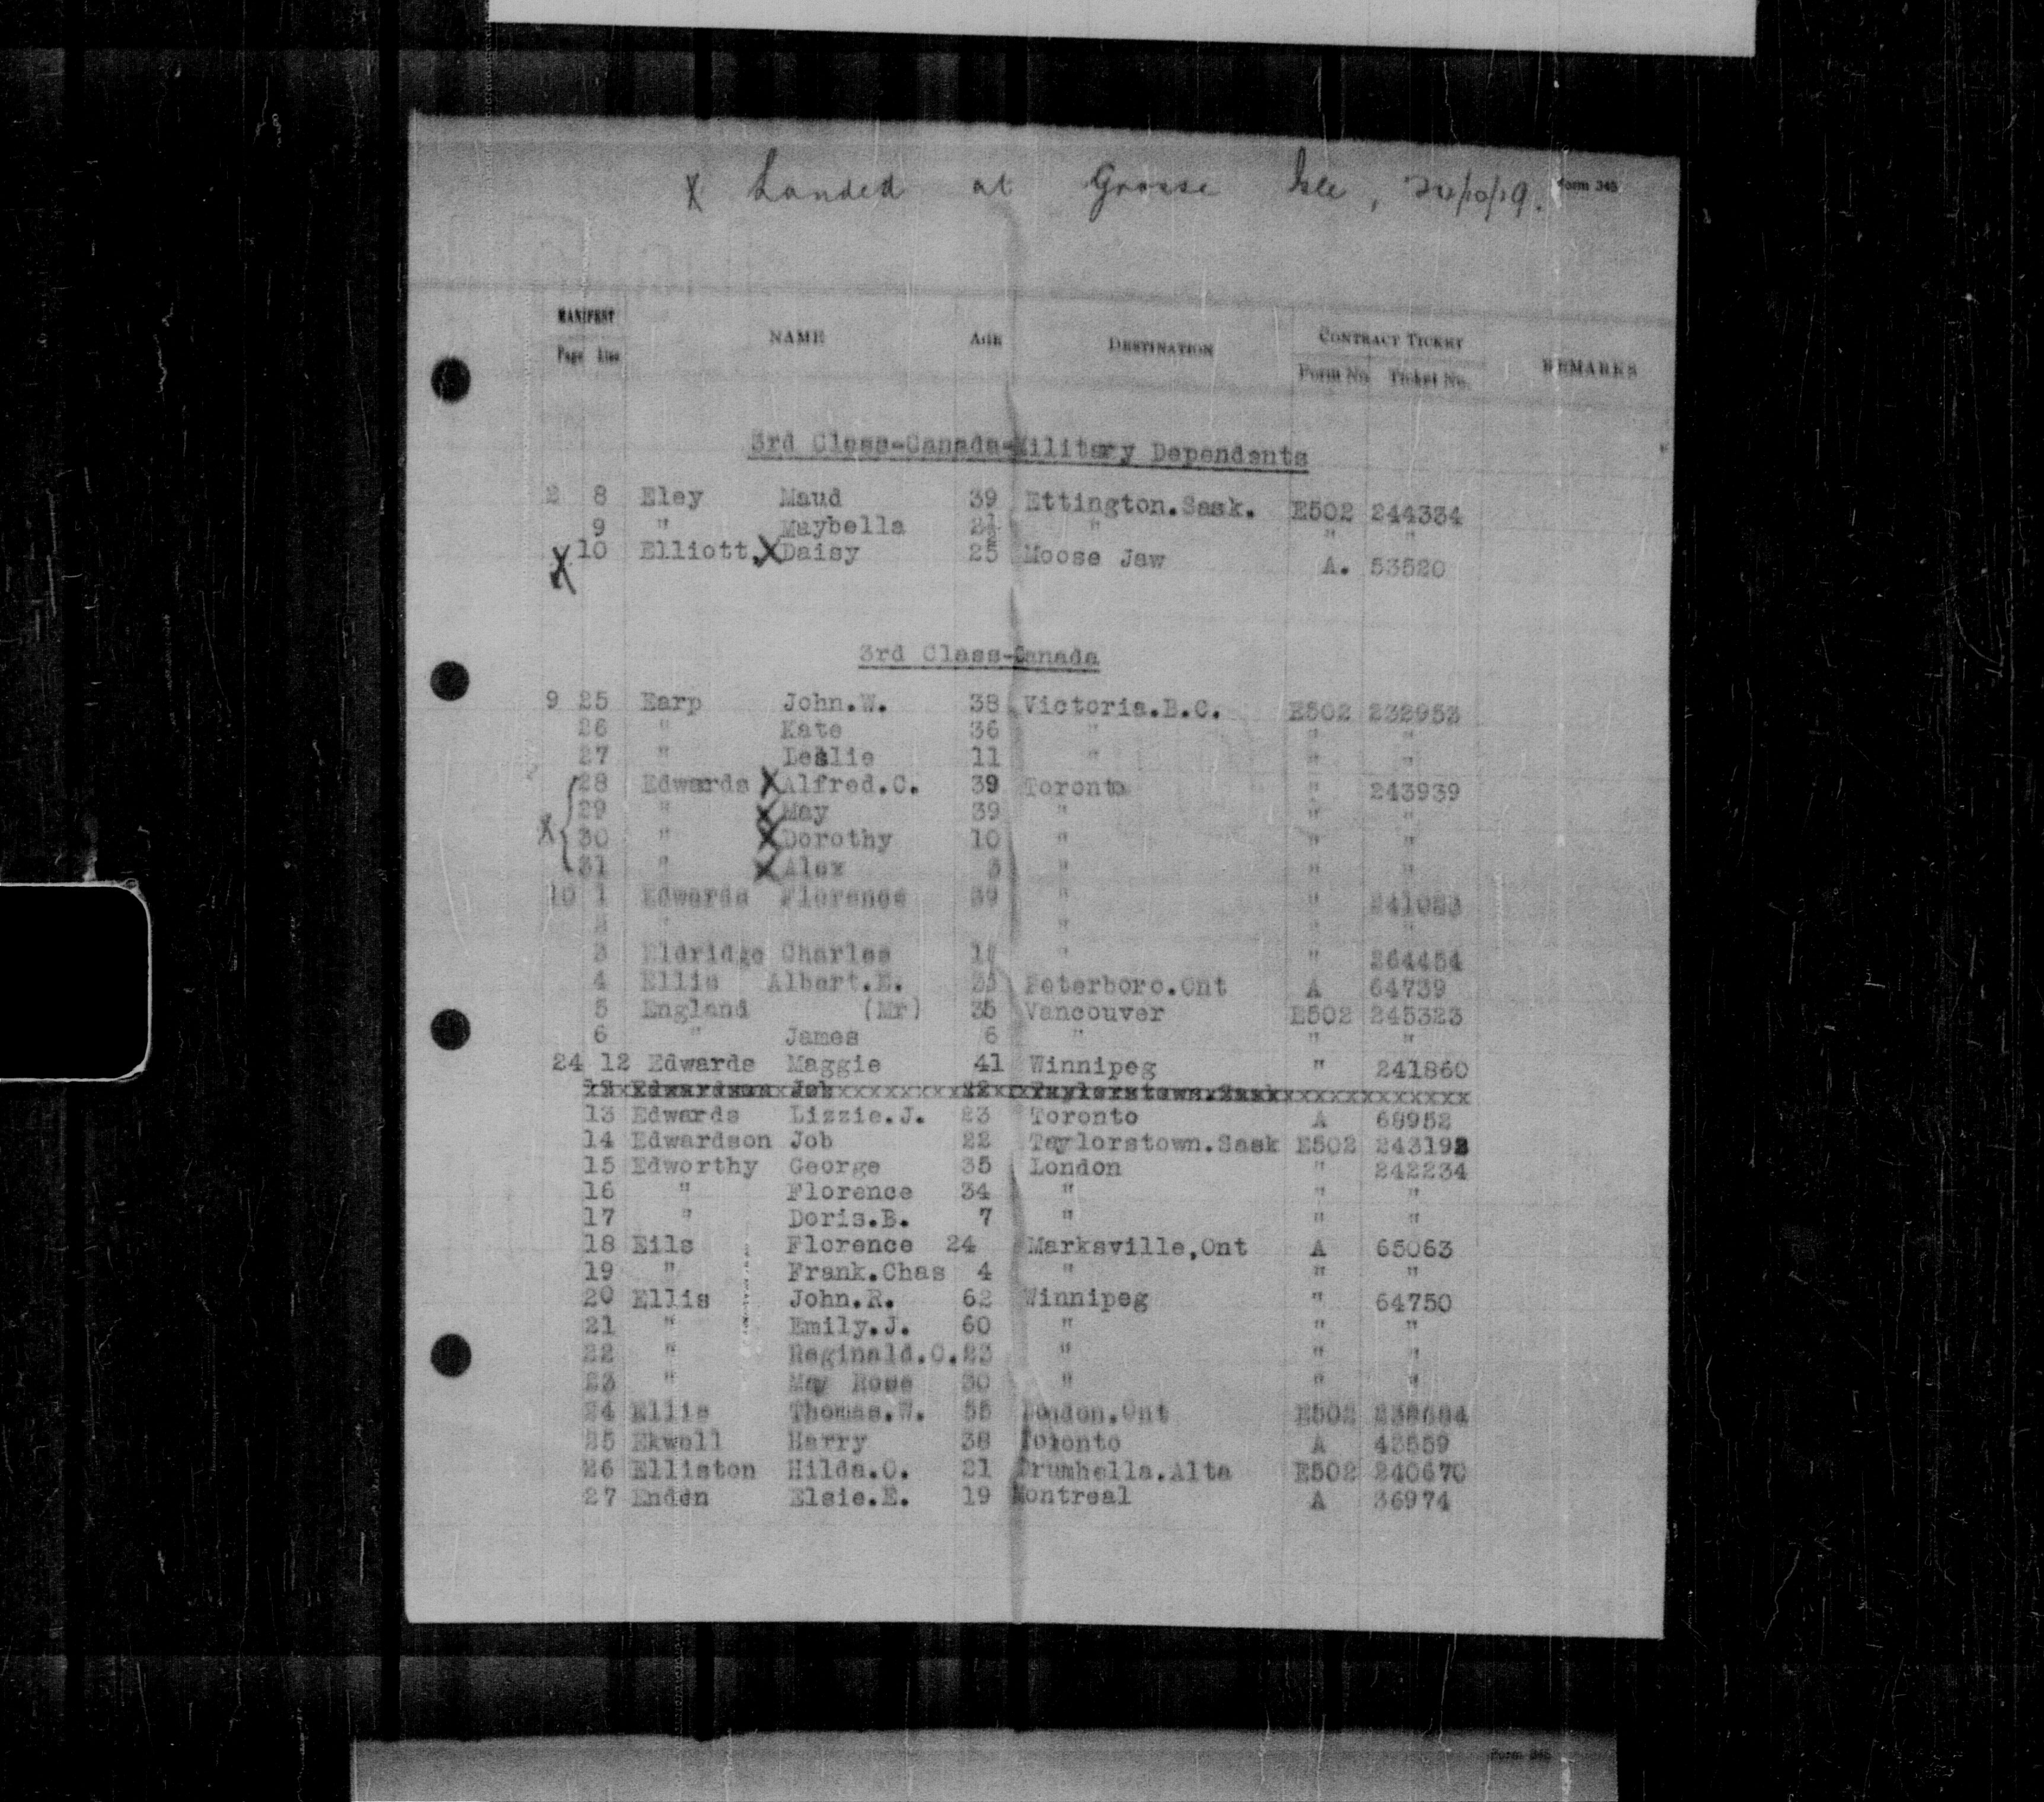 X Landed at Grosse Isle,
Form 345
MANIFEST NAME AGE DESTINATION CONTRACT TICKET REMARKS
Page Line Form No. Ticket No.
3rd Class-Canada-Military Dependents
2 8 Eley Maud 39 Ettington.Sask. E502 244334
9 " Maybella " " "
X 10 Elliott. X Daisy 25 Moose Jaw A. 53520
3rd Class-Canada
9 25 Earp John.W. 38 Victoria.B.C. E502 232953
26 " Kate 36 " " "
27 " Leslie 11 " " "
28 Edwards X Alfred.C. 39 Toronto " 243939
29 " X May 39 " " "
X 30 " X Dorothy 10 " " "
31 " X Alex 3 " " "
10 1 Edwards Florence 39 " " 241023
2 " " " "
3 Eldridge Charles " " 264454
4 Ellis Albert.E. 33 Peterboro.Ont A 64739
5 England (Mr) 35 Vancouver E502 245323
6 " James 6 " " "
24 12 Edwards Maggie 41 Winnipeg " 241860
13 Edwardson Job 22 Taylorstown.Sask
13 Edwards Lizzie.J. 23 Toronto A 68952
14 Edwardson Job 22 Taylorstown.Sask E502 243192
15 Edworthy George 35 London " 242234
16 " Florence 34 " " "
17 " Doris.B. 7 " " "
18 Eils Florence 24 Marksville,Ont A 65063
19 " Frank.Chas 4 " " "
20 Ellis John.R. 62 Winnipeg " 64750
21 " Emily.J. 60 " " "
22 " Reginald.C. 23 " " "
23 " May Rose 30 " " "
24 Ellis Thomas.W. 55 London.Ont E502
25 Ekwell Harry 38 Toronto A 43559
26 Elliston Hilda.O. 21 Drumhella.Alta E502 240670
27 Enden Elsie.E. 19 Montreal A 36974
Form 345